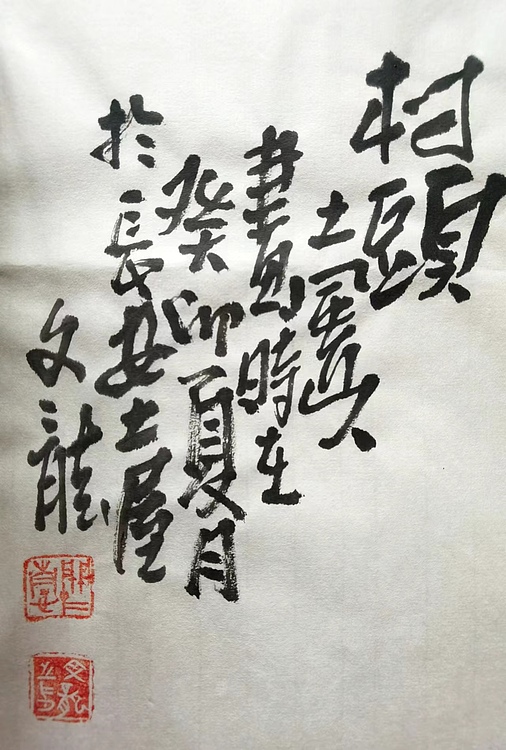 村頭
土
畫時在
癸卯夏月
於長安土屋
文龍